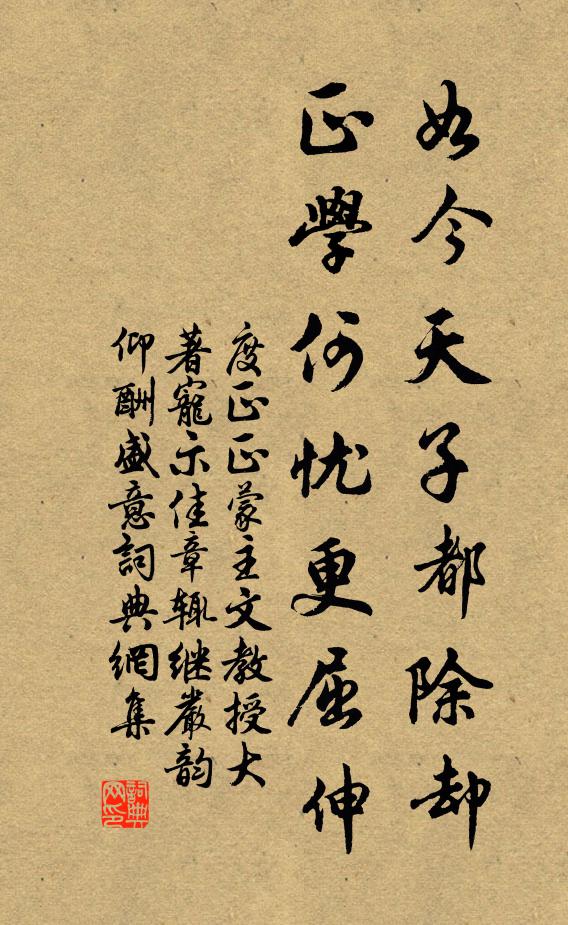 如今天子都除却
正學何忧更屈伸
度正正蒙主文教授大
著寵示佳章辄继嚴韵
仰酬盛意詞典網集
詞典
网印